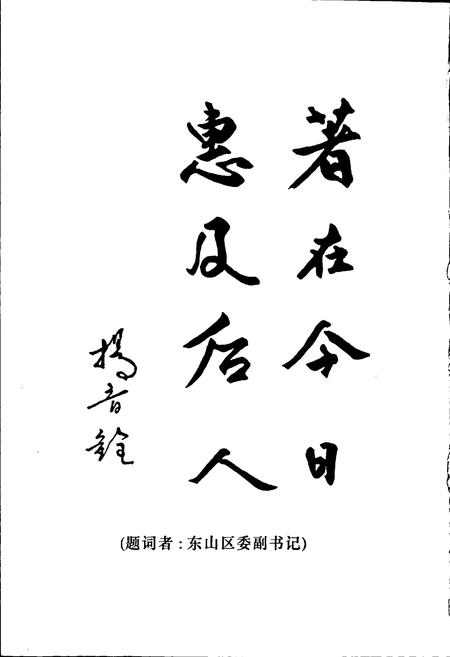 著在今日
惠及后人
杨音铨
(题词者:东山区委副书记)